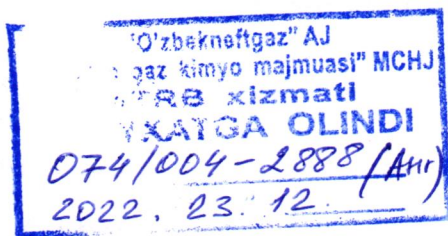 "O'zbekneftgaz" AJ
gaz kimyo majmuasi" MCHJ
xizmati
OLINDI
074/004-2888 (Анг)
2022. 23. 12.